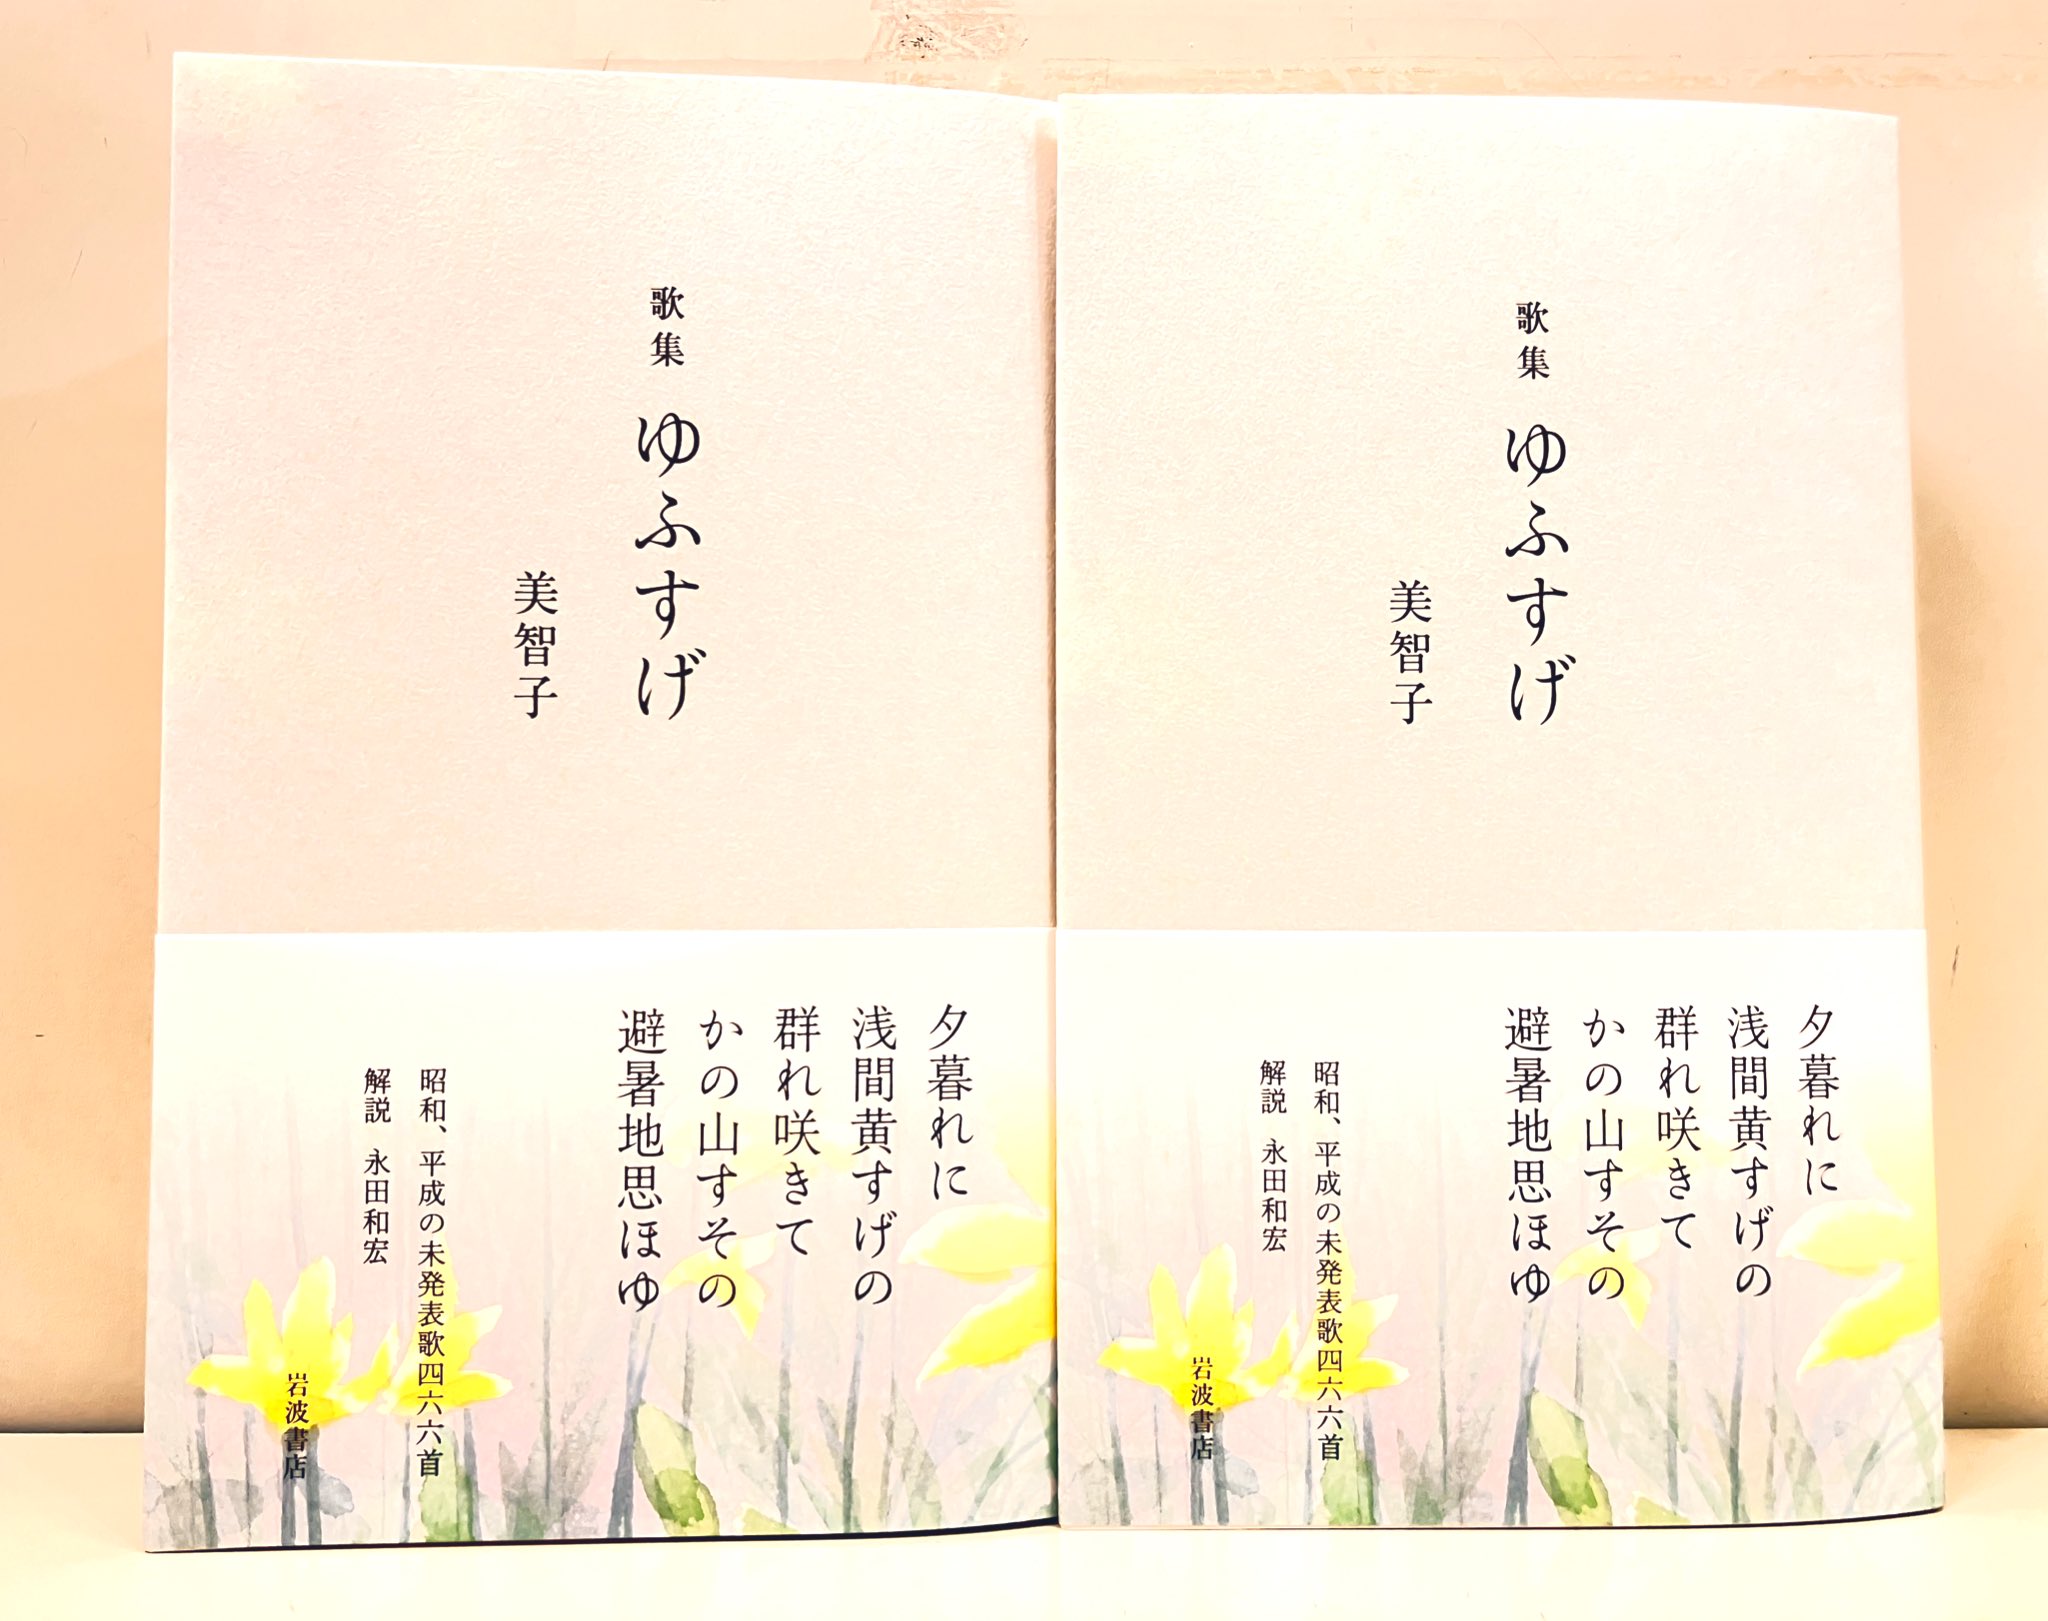 歌集 ゆふすげ
美智子
夕暮れに
浅間黄すげの
群れ咲きて
かの山すその
避暑地思ほゆ
昭和、平成の未発表歌四六六首
解説 永田和宏
岩波書店
歌集 ゆふすげ
美智子
夕暮れに
浅間黄すげの
群れ咲きて
かの山すその
避暑地思ほゆ
昭和、平成の未発表歌四六六首
解説 永田和宏
岩波書店